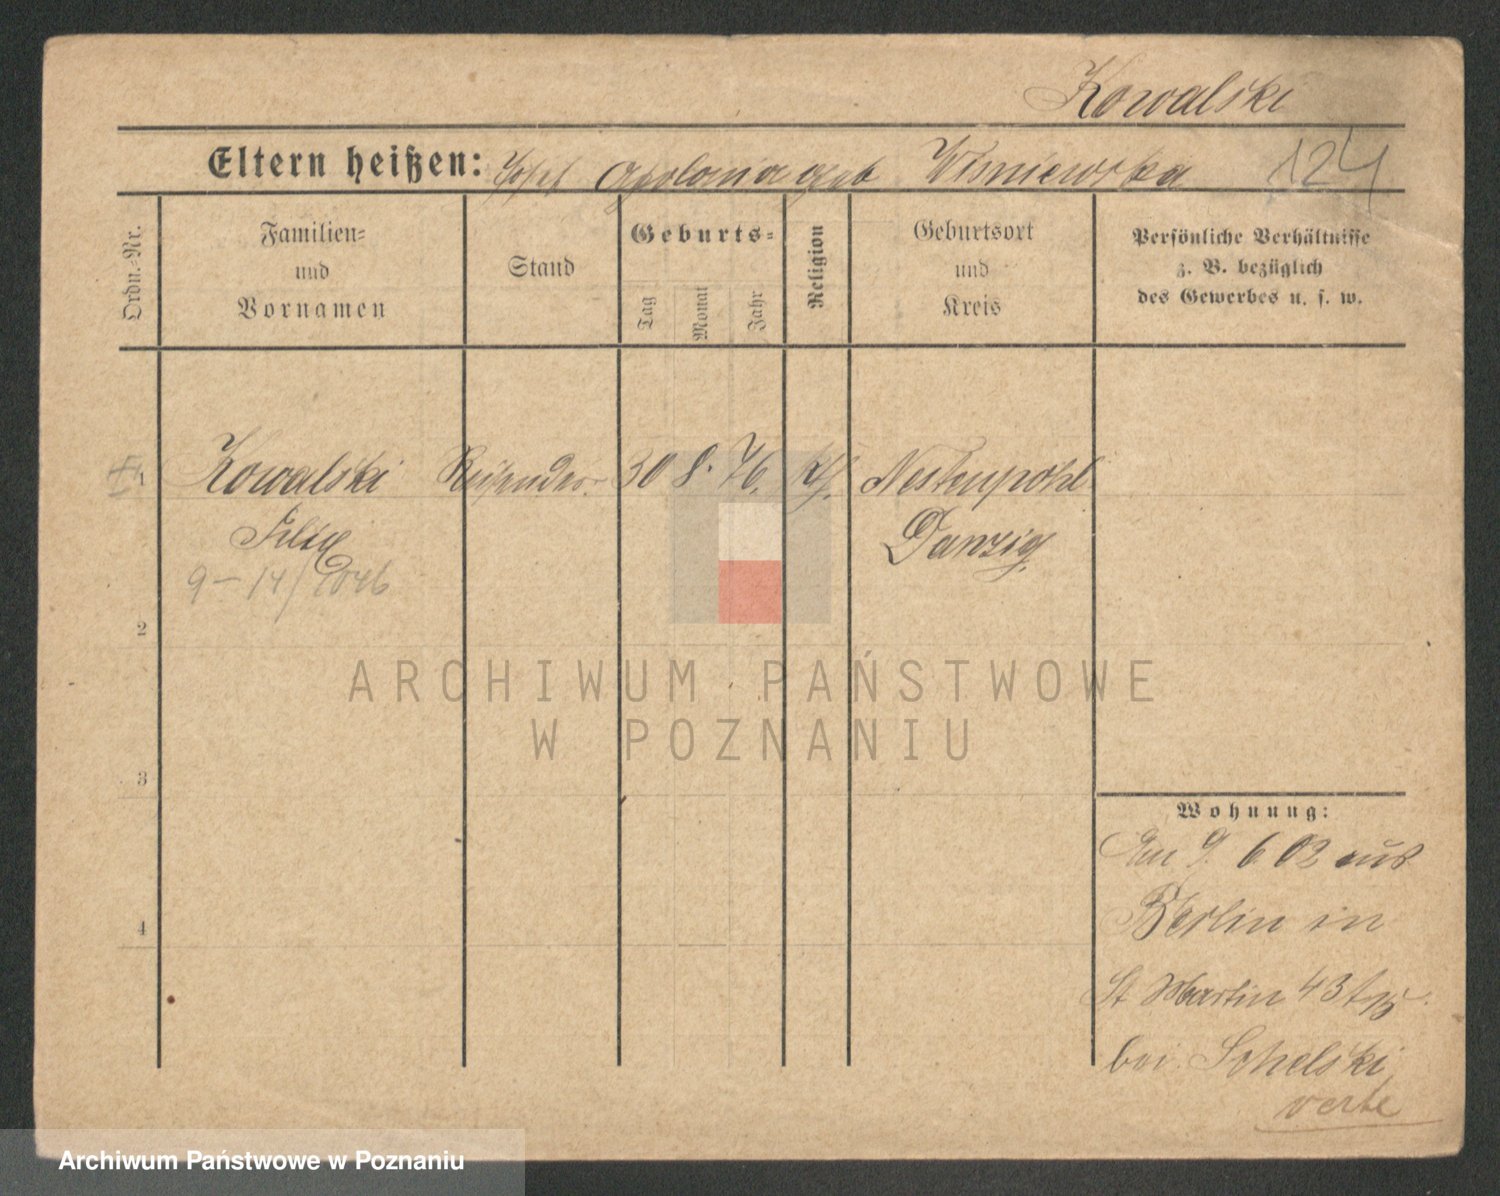 Kowalski
Eltern heißen: Josef Apolonia geb Wisniewska 124
Ordn.-Nr.
Familien-
und
Vornamen
Stand
Geburts-
Tag
Monat
Jahr
Religion
Geburtsort
und
Kreis
Persönliche Verhältnisse
z. B. bezüglich
des Gewerbes u. s. w.
1 Kowalski Reisender 30 8. 76.
Danzig
9-14/
2
3
4
Wohnung:
602 aus
Berlin in
St Martin 43
bei Schelski
verte
ARCHIWUM PAŃSTWOWE
W POZNANIU
Archiwum Państwowe w Poznaniu